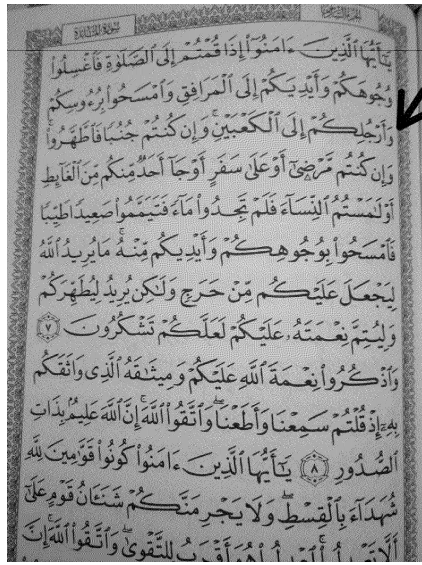 الجزء السادس سُورَةُ المَائِدَة
يَٰٓأَيُّهَا ٱلَّذِينَ ءَامَنُوٓا۟ إِذَا قُمْتُمْ إِلَى ٱلصَّلَوٰةِ فَٱغْسِلُوا۟
وُجُوهَكُمْ وَأَيْدِيَكُمْ إِلَى ٱلْمَرَافِقِ وَٱمْسَحُوا۟ بِرُءُوسِكُمْ
وَأَرْجُلِكُمْ إِلَى ٱلْكَعْبَيْنِ ۚ وَإِن كُنتُمْ جُنُبًا فَٱطَّهَّرُوا۟ ۚ
وَإِن كُنتُم مَّرْضِىٰٓ أَوْ عَلَىٰ سَفَرٍ أَوْ جَآ أَحَدٌ مِّنكُم مِّنَ ٱلْغَآئِطِ
أَوْ لَٰمَسْتُمُ ٱلنِّسَآءَ فَلَمْ تَجِدُوا۟ مَآءً فَتَيَمَّمُوا۟ صَعِيدًا طَيِّبًا
فَٱمْسَحُوا۟ بِوُجُوهِكُمْ وَأَيْدِيكُم مِّنْهُ ۚ مَا يُرِيدُ ٱللَّهُ
لِيَجْعَلَ عَلَيْكُم مِّنْ حَرَجٍ وَلَٰكِن يُرِيدُ لِيُطَهِّرَكُمْ
وَلِيُتِمَّ نِعْمَتَهُۥ عَلَيْكُمْ لَعَلَّكُمْ تَشْكُرُونَ ٧
وَٱذْكُرُوا۟ نِعْمَةَ ٱللَّهِ عَلَيْكُمْ وَمِيثَٰقَهُ ٱلَّذِى وَاثَقَكُم
بِهِۦٓ إِذْ قُلْتُمْ سَمِعْنَا وَأَطَعْنَا ۖ وَٱتَّقُوا۟ ٱللَّهَ ۚ إِنَّ ٱللَّهَ عَلِيمٌۢ بِذَاتِ
ٱلصُّدُورِ ٨ يَٰٓأَيُّهَا ٱلَّذِينَ ءَامَنُوا۟ كُونُوا۟ قَوَّٰمِينَ لِلَّهِ
شُهَدَآءَ بِٱلْقِسْطِ ۖ وَلَا يَجْرِمَنَّكُمْ شَنَـَٔانُ قَوْمٍ عَلَىٰٓ
أَلَّا تَعْدِلُوا۟ ۚ ٱعْدِلُوا۟ هُوَ أَقْرَبُ لِلتَّقْوَىٰ ۖ وَٱتَّقُوا۟ ٱللَّهَ ۚ إِنَّ